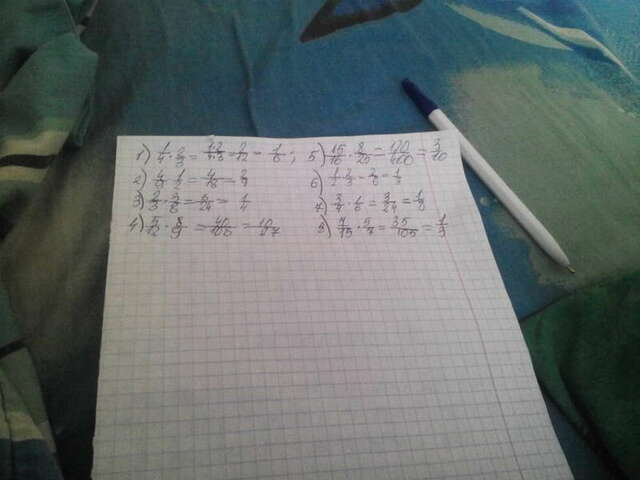 1) 1/4 · 2/3 = 1·2/4·3 = 2/12 = 1/6 ; 5) 15/16 · 8/25 = 120/400 = 3/10
2) 4/9 · 1/2 = 4/18 = 2/9 6) 1/2 · 2/3 = 2/6 = 1/3
3) 2/3 · 3/8 = 6/24 = 1/4 7) 3/4 · 1/6 = 3/24 = 1/8
4) 5/12 · 8/9 = 40/108 = 10/27 8) 7/15 · 5/7 = 35/105 = 1/3